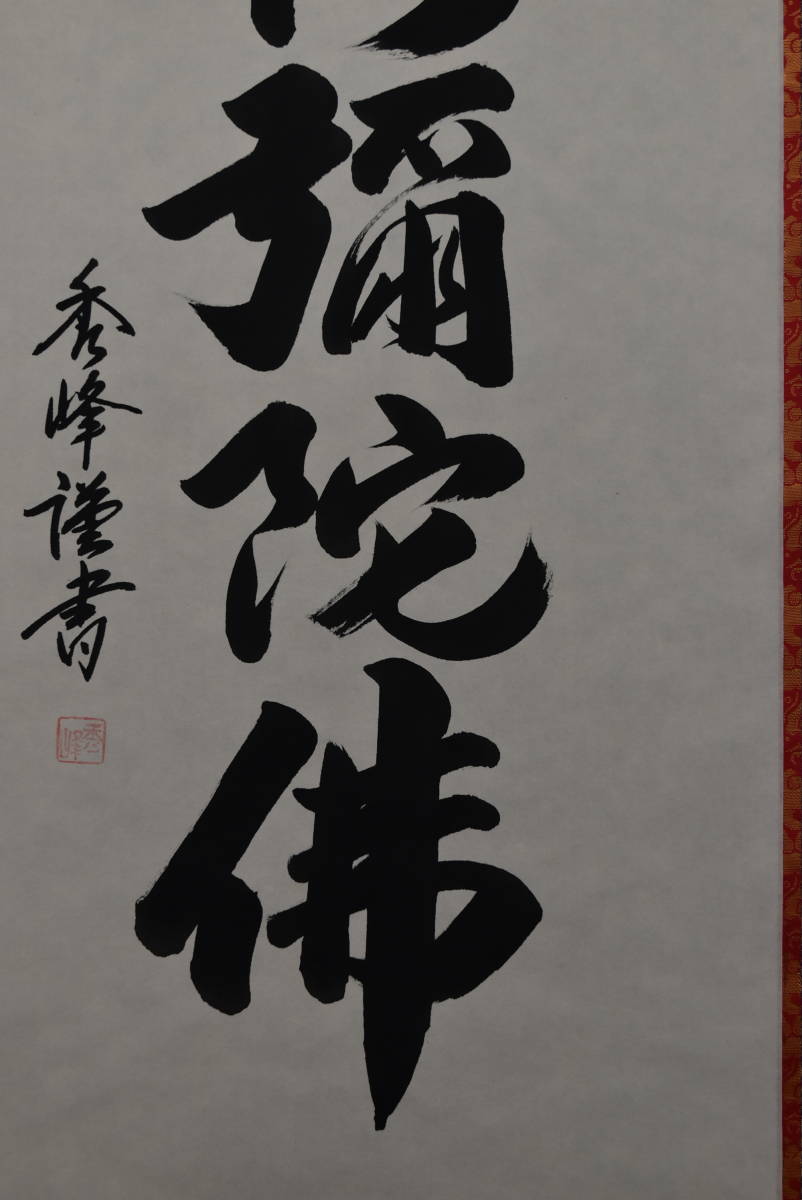 彌陀佛
秀峰謹書
秀峰